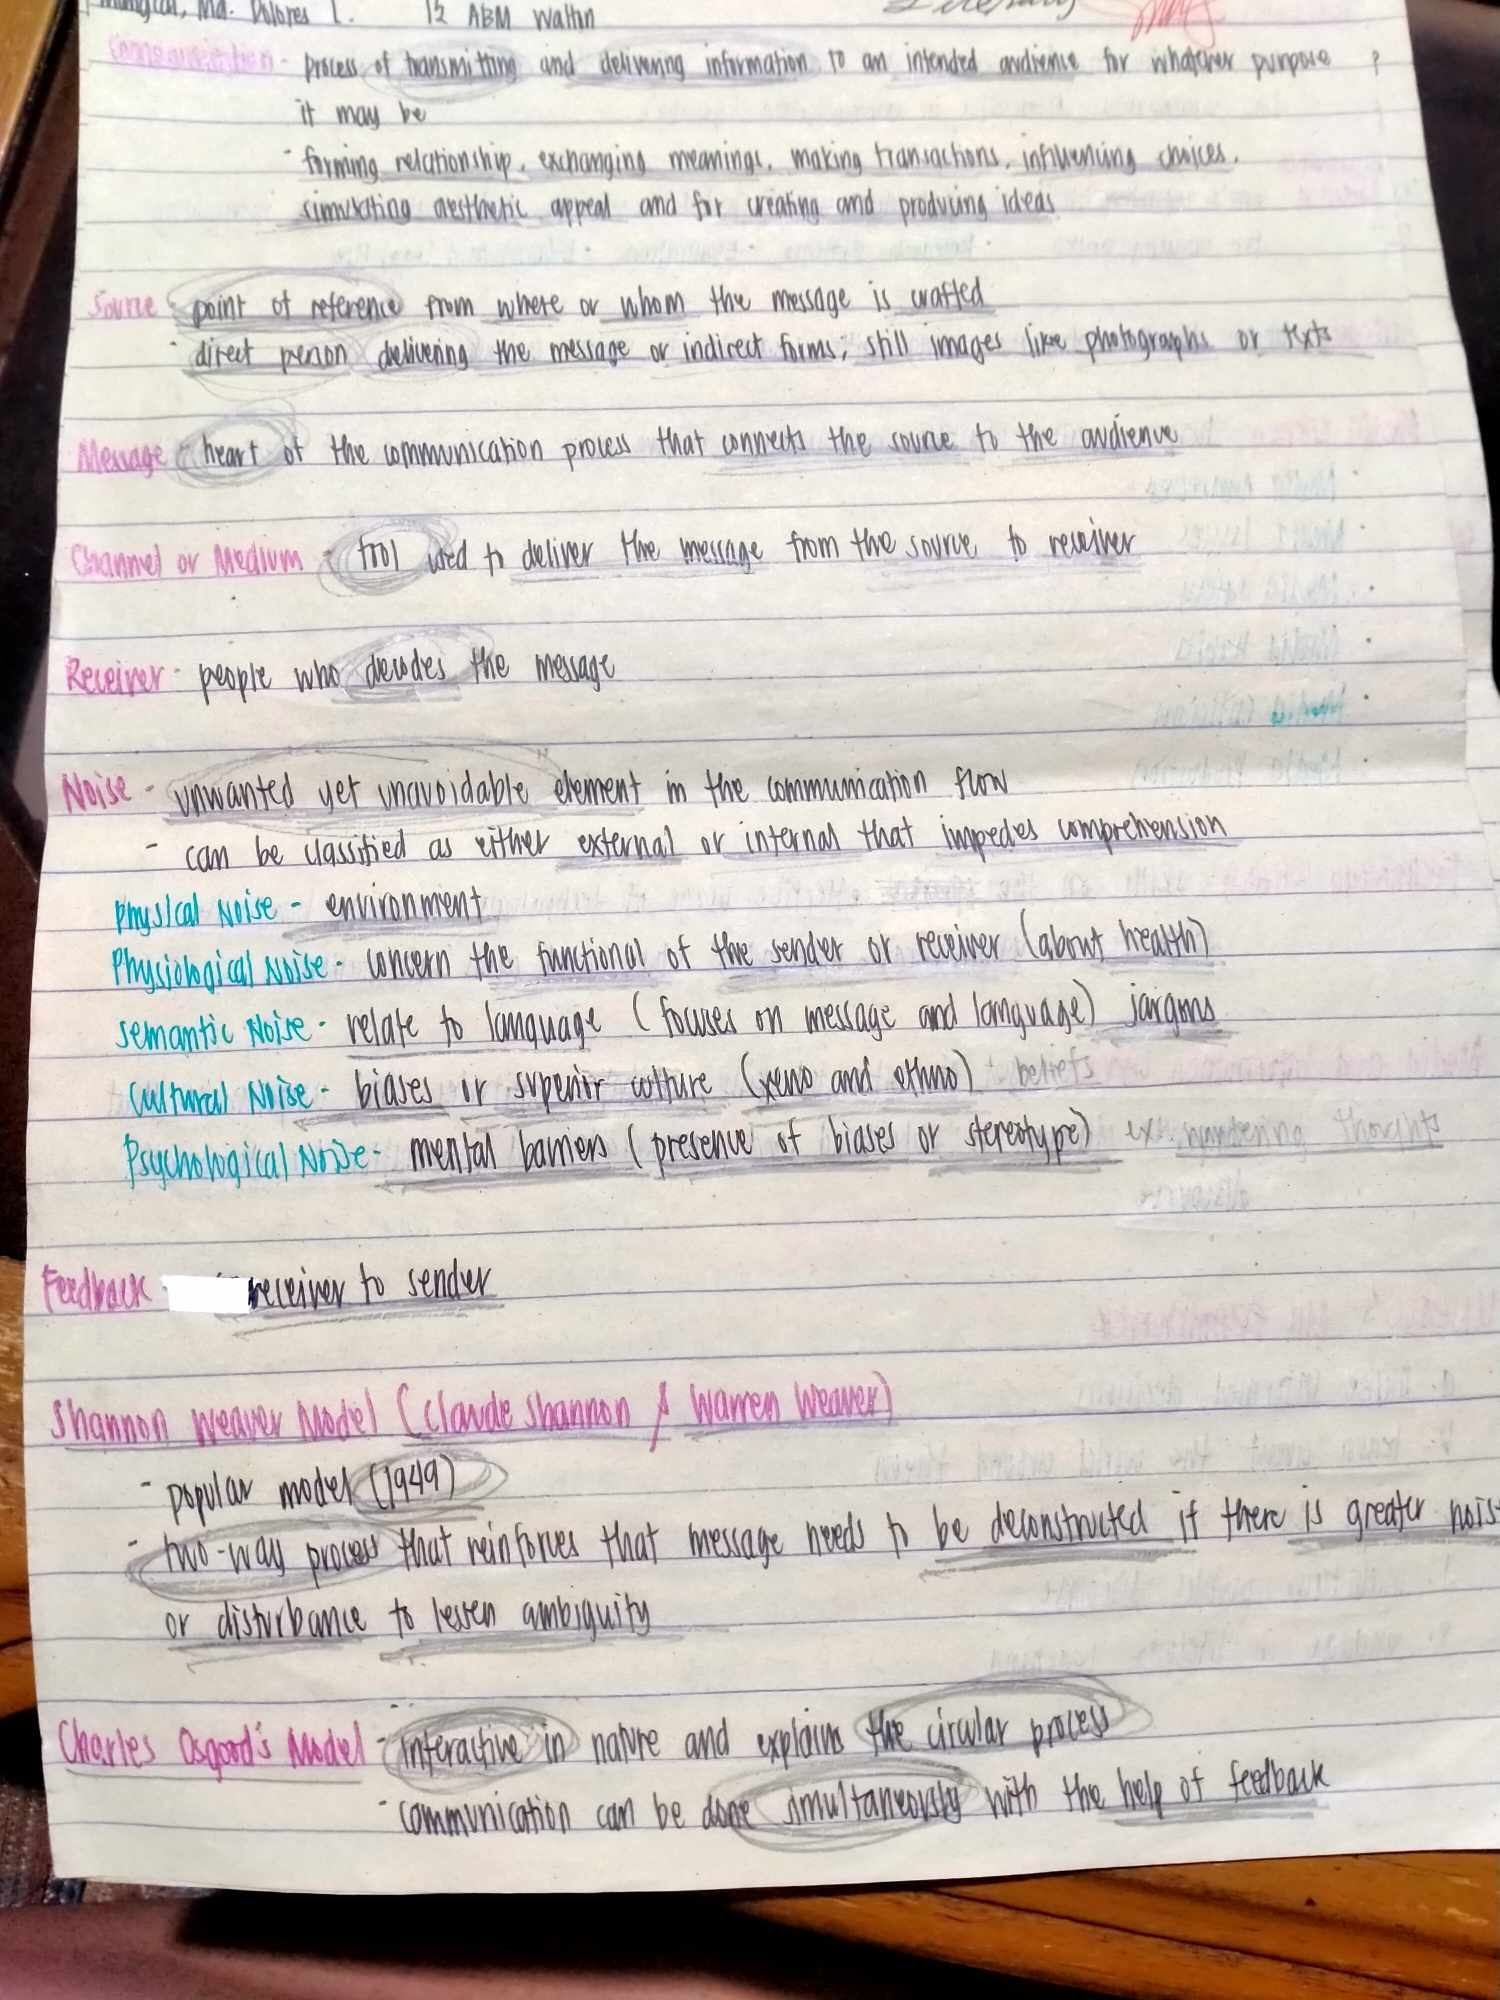 Md. Dolores L. 12 ABM Walton
Communication - process of transmitting and delivering information to an intended audience for whatever purpose ?
it may be
- forming relationship, exchanging meanings, making transactions, influencing choices,
simulating aesthetic appeal and for creating and producing ideas
Source - point of reference from where or whom the message is crafted
- direct person delivering the message or indirect forms; still images like photographs or texts
Message - heart of the communication process that connects the source to the audience
Channel or Medium - tool used to deliver the message from the source to receiver
Receiver - people who decodes the message
Noise - unwanted yet unavoidable element in the communication flow
- can be classified as either external or internal that impedes comprehension
Physical Noise - environment
Physiological Noise - concern the functional of the sender or receiver (about health)
Semantic Noise - relate to language (focuses on message and language) jargons
Cultural Noise - biases or superior culture (xeno and ethno) beliefs
Psychological Noise - mental barriers (presence of biases or stereotype) ex. wandering thoughts
Feedback - receiver to sender
Shannon Weaver Model (Claude Shannon & Warren Weaver)
- popular model (1949)
- two-way process that reinforces that message needs to be deconstructed if there is greater nois
or disturbance to lessen ambiguity
Charles Osgood's Model - interactive in nature and explains the circular process
- communication can be done simultaneously with the help of feedback